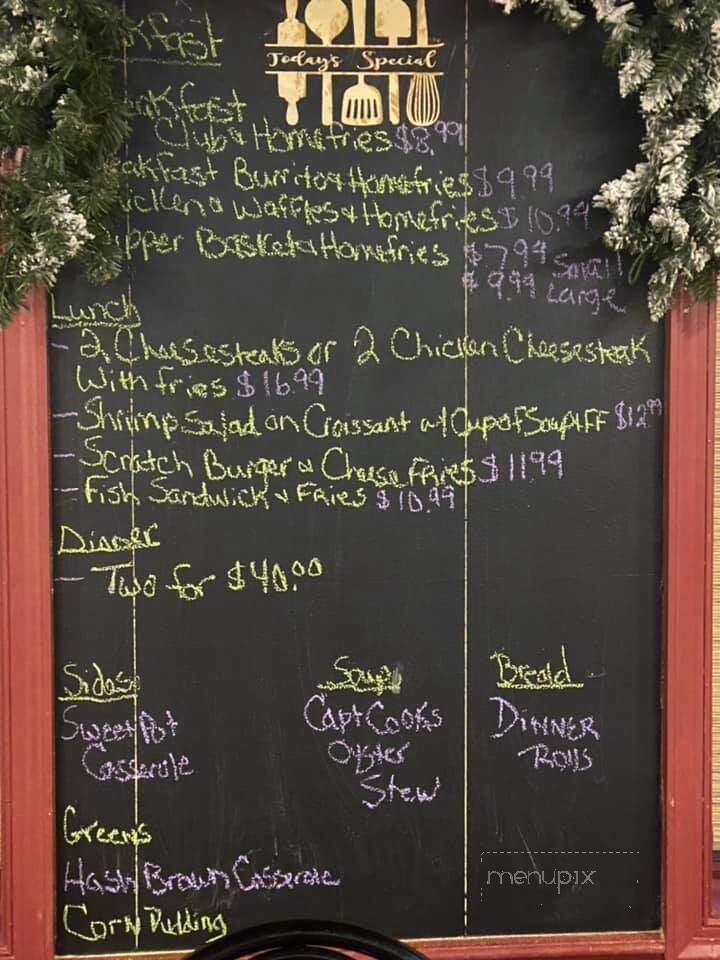 Today's Special
kfast
akfast
Club & Homefries $8.99
eakfast Burrito & Homefries $9.99
icken & Waffles & Homefries $10.99
pper Basket & Homefries $7.99 Small
$9.99 Large
Lunch
- 2 Cheesesteaks or 2 Chicken Cheesesteak
With fries $16.99
- Shrimp Salad on Croissant w/ Cup of Soup + FF $12.99
- Scratch Burger & Cheese Fries $11.99
- Fish Sandwich & Fries $10.99
Dinner
- Two for $40.00
Sides Soup Bread
Sweet Pot Capt Cooks Dinner
Casserole Oyster Rolls
Stew
Greens
Hash Brown Casserole
Corn Pudding
menupix